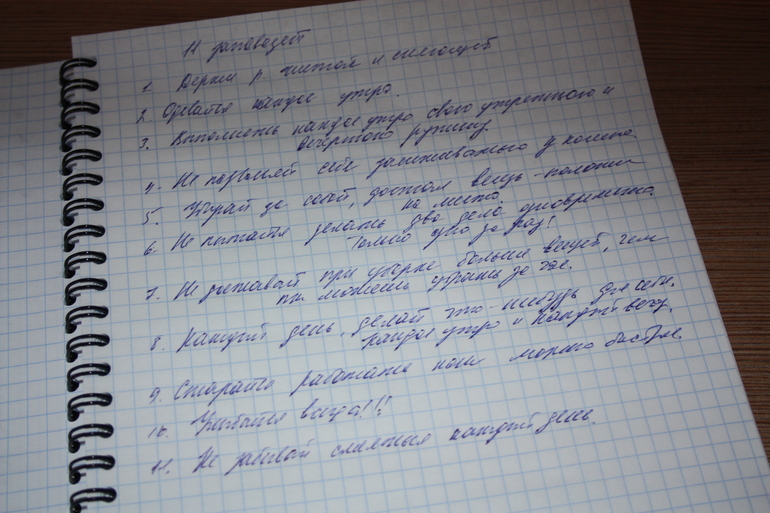 11 заповедей
1. Держи р. чистой и сияющей
2. Одевайся каждое утро.
3. Выполнять каждое утро свою утреннюю и
вечернюю рутину.
4. Не позволяй себе засиживаться у компа.
5. Убирай за собой, достал вещь - положи
на место.
6. Не пытайся делать два дела одновременно.
Только одно за раз!
7. Не доставай при уборке больше вещей, чем
ты можешь убрать за час.
8. Каждый день, делай что-нибудь для себя.
Каждое утро и каждый вечер.
9. Старайся работать как можно быстрее.
10. Улыбайся всегда!!!
11. Не забывай смеяться каждый день.